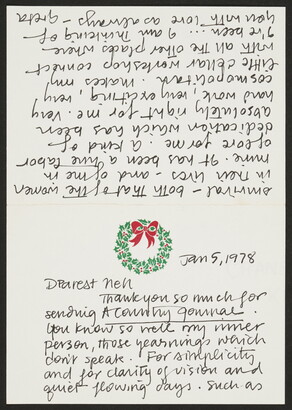 Jan 5, 1978
Dearest Nell
Thank you so much for
sending A Country Journal.
You know so well my inner
person, those yearnings which
don't speak. For simplicity
and for clarity of vision and
quiet flowing days. Such as
survival – both that of the women
in their lives – and of me in
mine. It has been a labor
of love for me. A kind of
dedication which has been
absolutely right for me. very
hard work, very exciting, very
cosmopolitan. makes my
little cellar workshop connect
with all the other places where
I've been ... I am thinking of
you with love as always – Greta